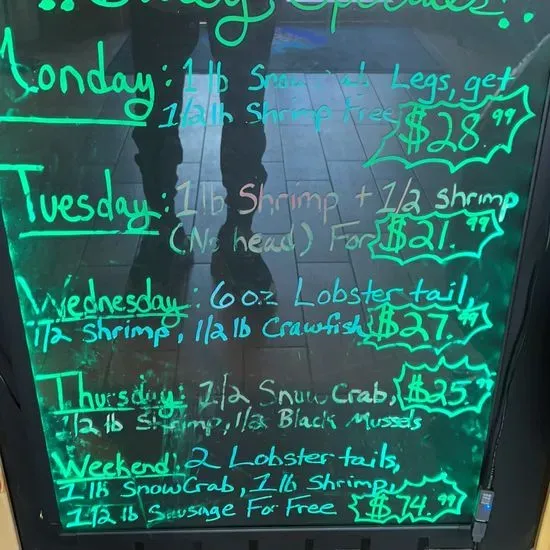 Specials
Monday: 1 lb Snow Crab Legs, get
1/2 lb Shrimp free $28.99
Tuesday: 1 lb Shrimp + 1/2 shrimp
(No head) For $21.99
Wednesday: 6 oz Lobster tail,
1/2 Shrimp, 1/2 lb Crawfish $27.99
Thursday: 1/2 Snow Crab, $25.99
1/2 lb Shrimp, 1/2 Black Mussels
Weekend: 2 Lobster tails,
1 lb Snow Crab, 1 lb Shrimp,
1/2 lb Sausage For Free $74.99